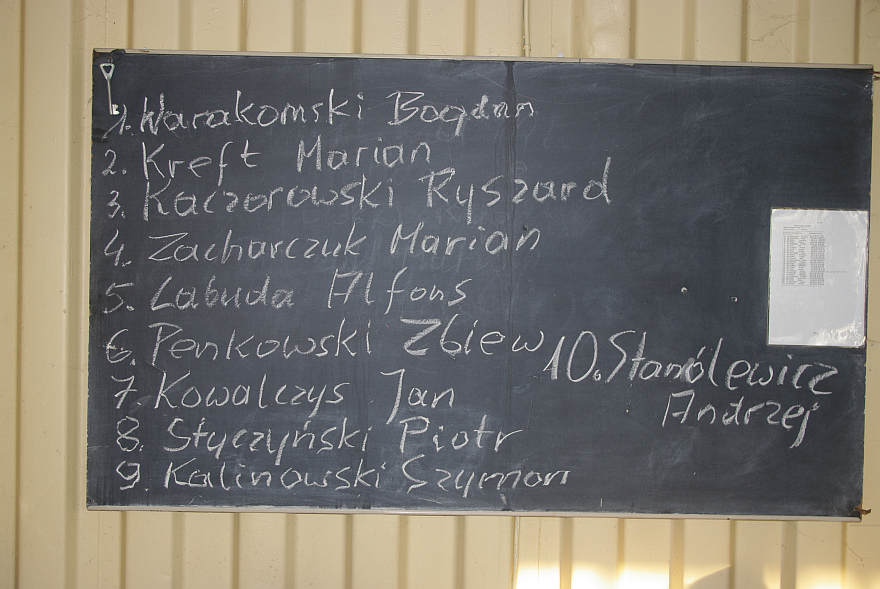 1. Warakomski Bogdan
2. Kreft Marian
3. Kaczorowski Ryszard
4. Zacharczuk Marian
5. Labuda Alfons
6. Penkowski Zbiew
7. Kowalczys Jan
8. Styczyński Piotr
9. Kalinowski Szymon
10. Stanólewicz
Andrzej